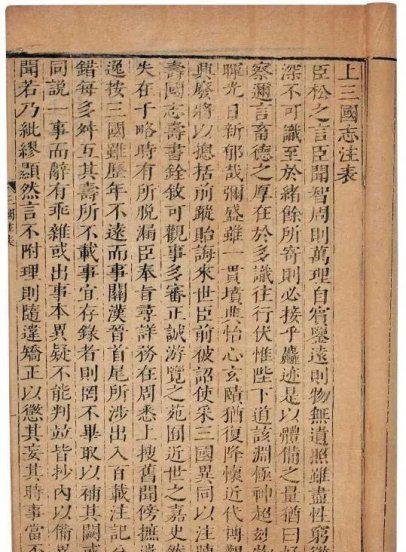 上三國志注表
臣松之言臣聞智周則萬理自賓鑒遠則物無遺照雖盡性窮
深不可識至於緒餘所寄則必接乎麤迹是以體備之量猶曰
察邇言畜德之厚在於多識往行伏惟陛下道該淵極神超
暉光日新郁哉彌盛雖一貫墳典怡心玄賾猶復降懷近代博觀
典廢將以總括前蹤貽誨來世臣前被詔使采三國異同以注
壽國志壽書銓敘可觀事多審正誠游覽之苑囿近世之嘉史然
失在于略時有所脫漏臣奉旨尋詳務在周悉上搜舊聞傍摭
逸按三國雖歷年不遠而事關漢晉首尾所涉出入百載注記
錯每多舛互其壽所不載事宜存錄者則罔畢取以補其闕
同說一事而辭有乖雜或出事本異疑不能判並皆抄內以備
聞若乃紕繆顯然言不附理則隨違矯正以懲其妄其時事當
三國注表